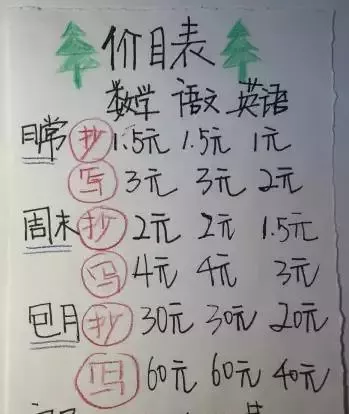 价目表
数学 语文 英语
日常 抄 1.5元 1.5元 1元
写 3元 3元 2元
周末 抄 2元 2元 1.5元
写 4元 4元 3元
包月 抄 30元 30元 20元
写 60元 60元 40元